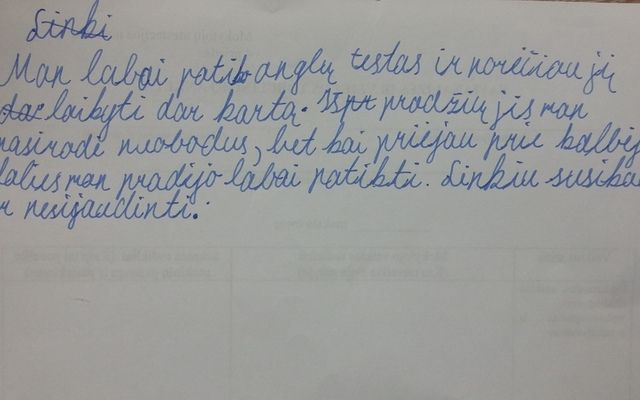 Linki
Man labai patiko anglų testas ir norėčiau jį
dar laikyti dar kartą. Iš pr pradžių jis man
nasirodė nuobodus, bet kai priėjau prie kalbėj
dalies man pradėjo labai patikti. Linkiu susikau
r nesijaudinti.